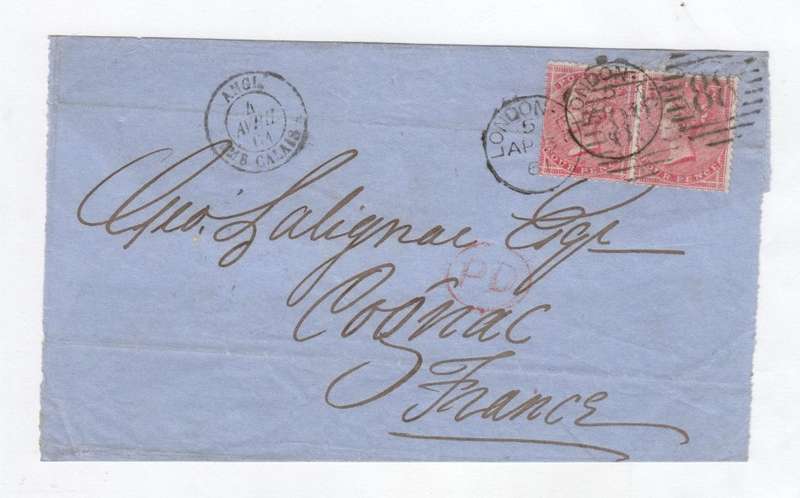 ANGL.
4
AVRIL
61
AMB. CALAIS A
LONDON
5
AP
6
LONDON
88
FOUR PENCE
FOUR PENCE
PD
Geo. Salignac Esqr
Cognac
France